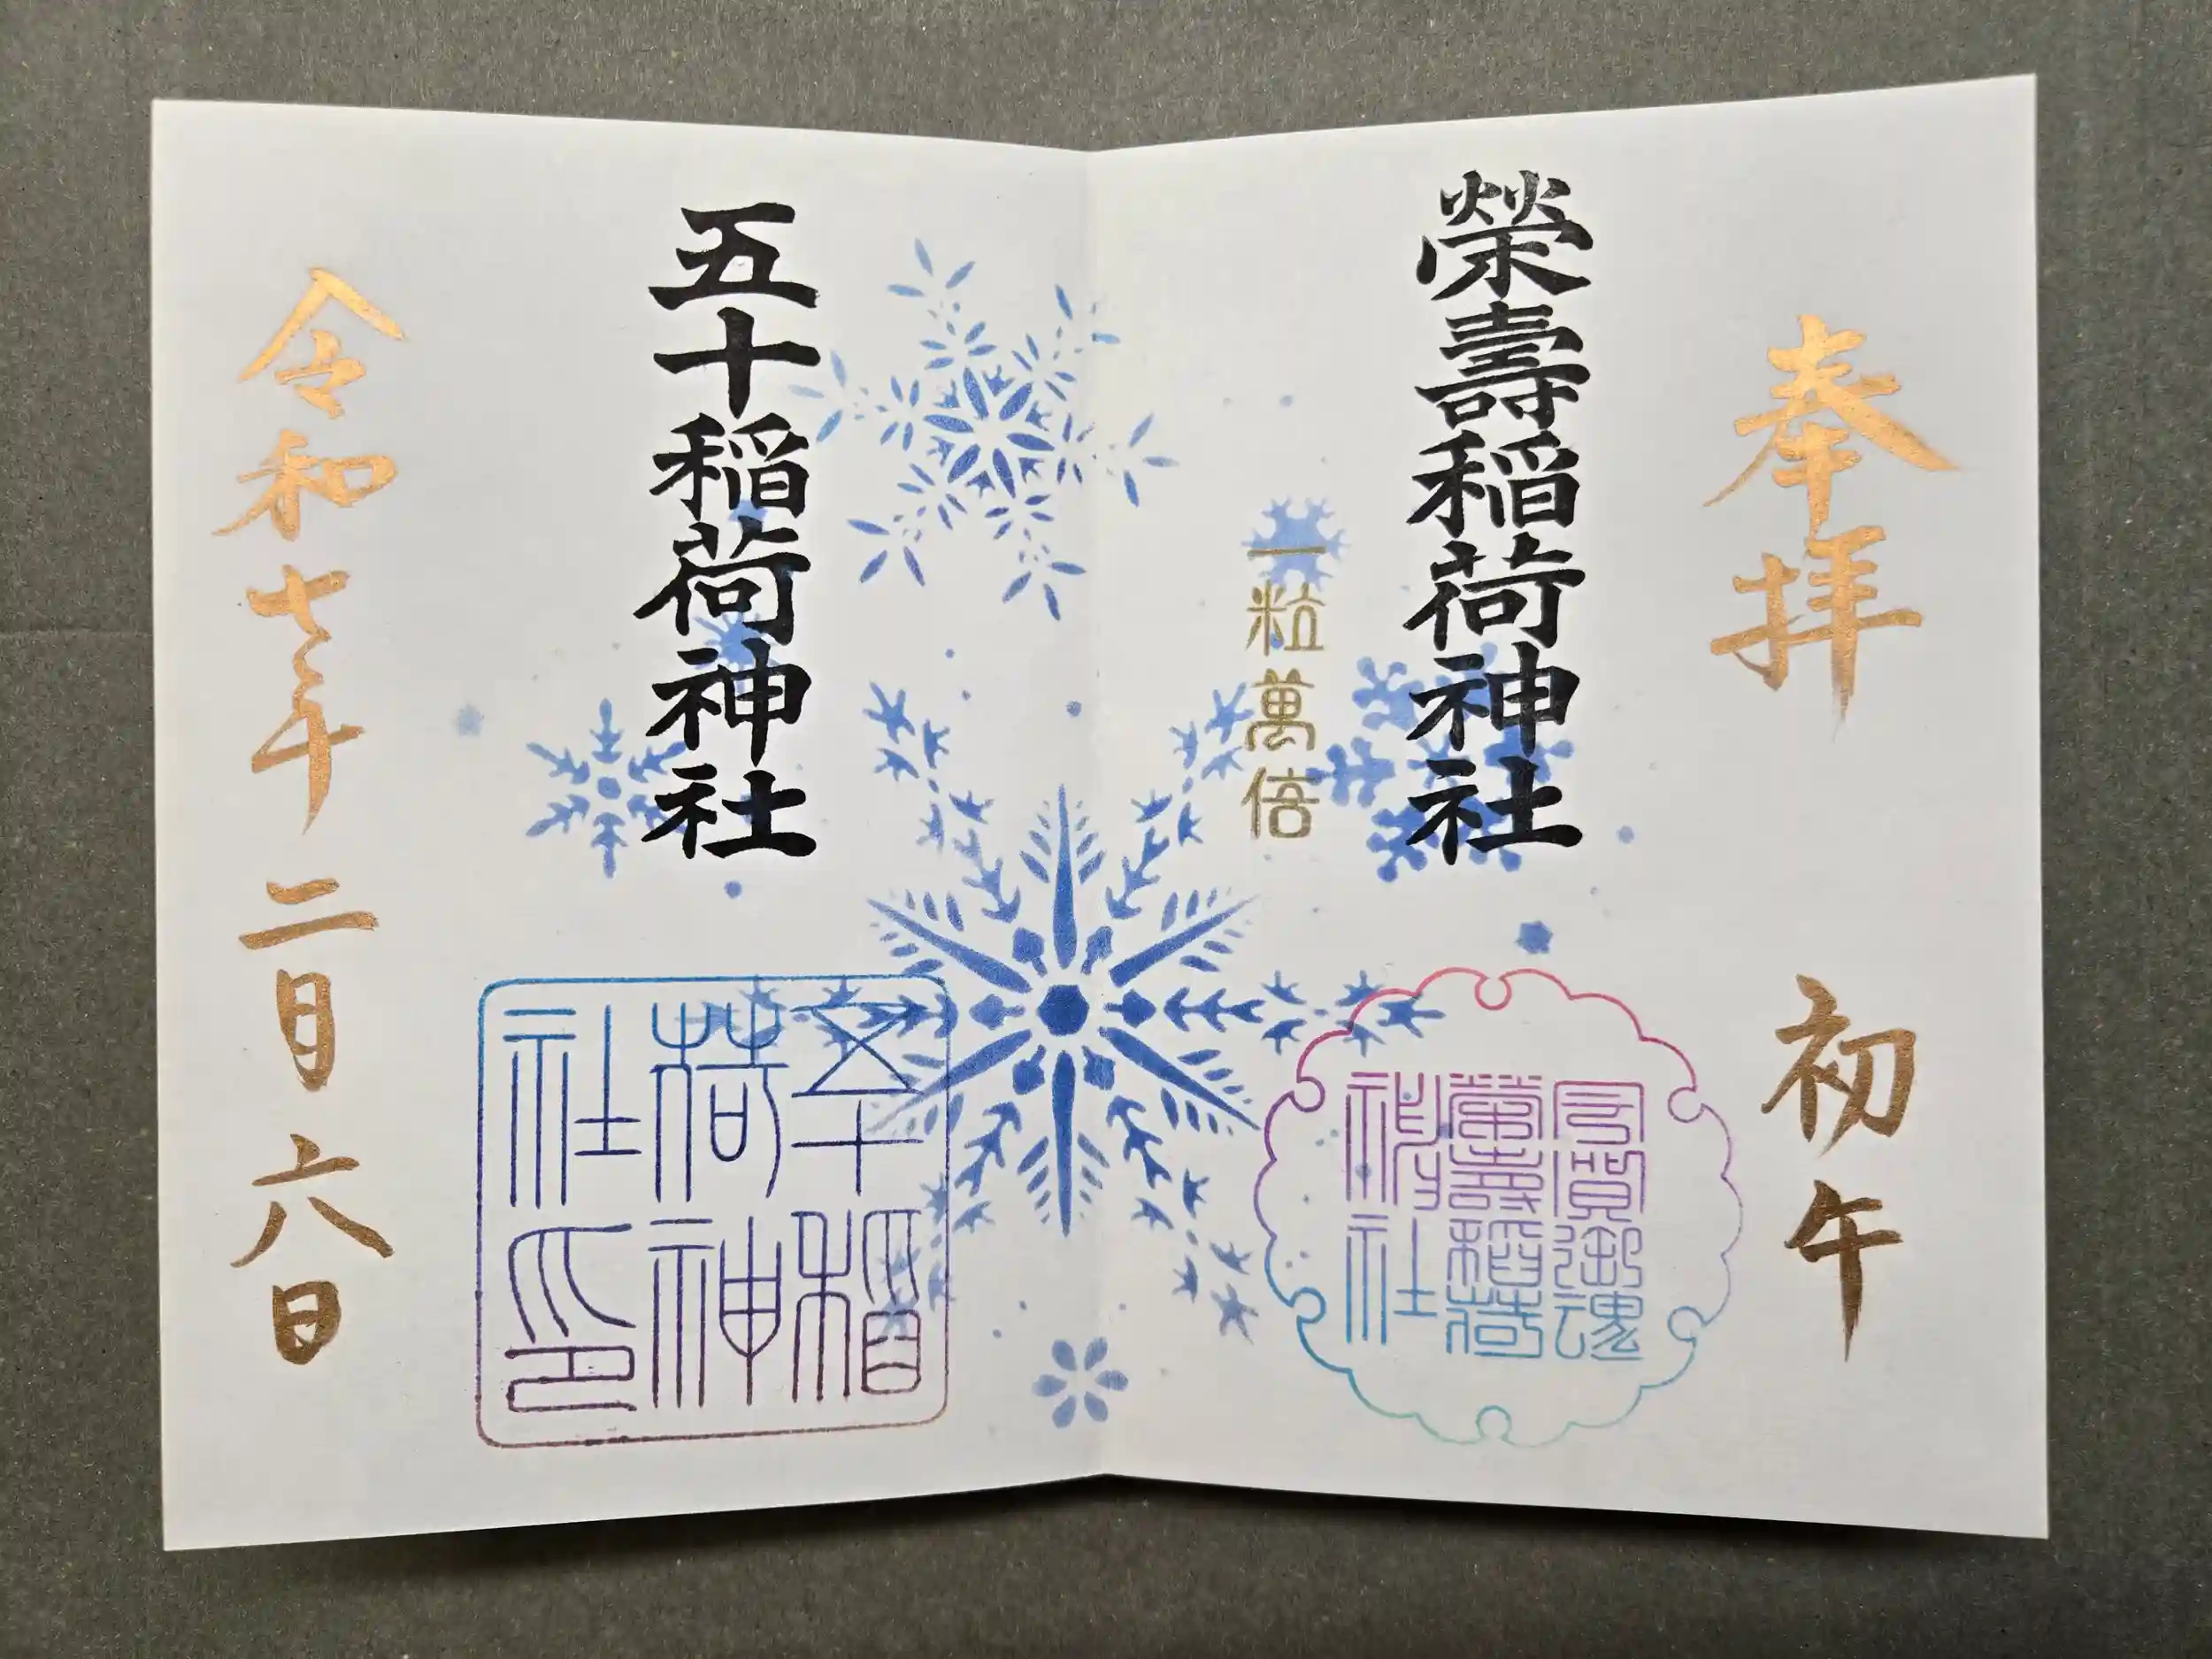 奉拝 初午
榮壽稲荷神社
一粒萬倍
御魂
榮壽稲荷
社
五十稲荷神社
五十稲
荷神
社印
令和七年 二月六日